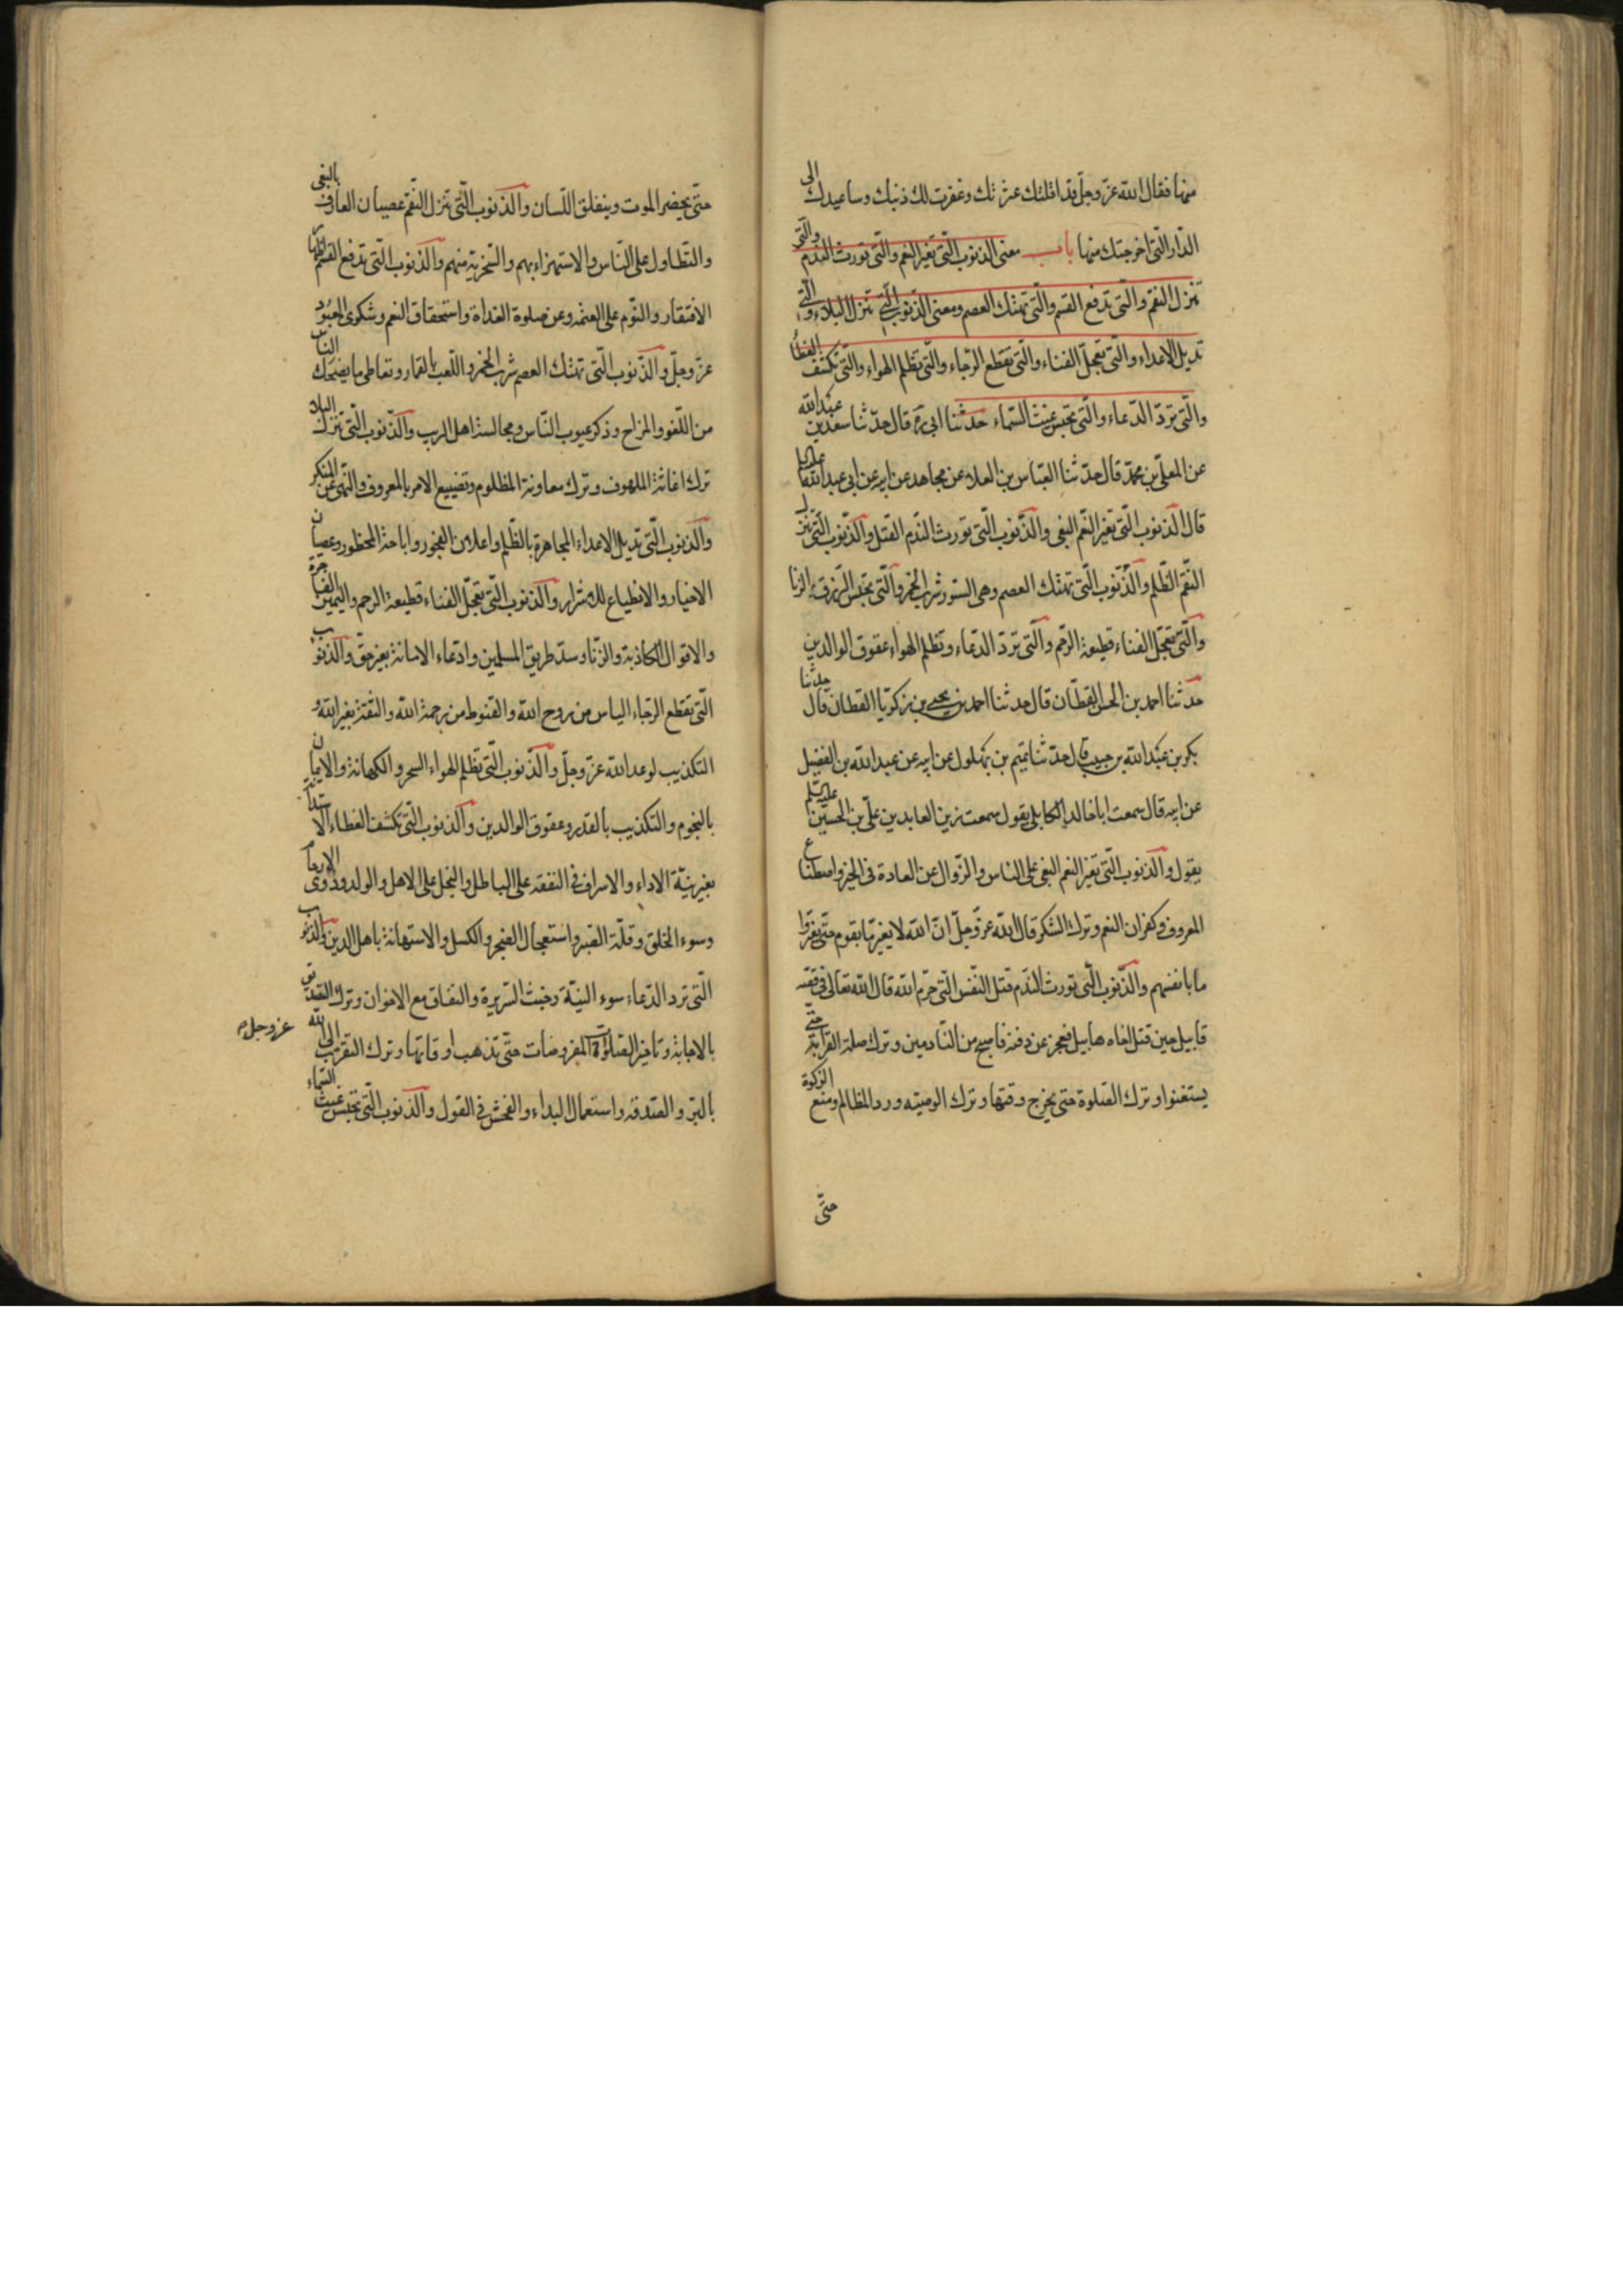 منها فقال الله عزّ وجلّ قد اقلتك عثرتك وغفرت لك ذنبك وساعيدك الى
الدّار الّتى اخرجتك منها باب معنى الذنوب الّتى تغيّر النعم والّتى تورث النّدم والّتى
تنزل النقم والّتى تدفع القسم والّتى تهتك العصم ومعنى الذّنوب الّتى تنزل البلاء والّتى
تديل الاعداء والّتى تعجّل الفناء والّتى تقطع الرّجاء والّتى تظلم الهواء والّتى تكشف الغطاء
والّتى تردّ الدّعاء والّتى تحبس غيث السّماء حدثنا ابى ره قال حدّثنا سعد بن عبد الله
عن المعلّى بن محمّد قال حدّثنا العبّاس بن العلاء عن مجاهد عن ابيه عن ابى عبد الله عليه السلم
قال الذنوب الّتى تغيّر النّعم البغى والذّنوب الّتى تورث النّدم القتل والذّنوب الّتى تنزل
النّقم الظّلم والذّنوب الّتى تهتك العصم وهى الستور شرب الخمر والّتى تحبس الرّزق الزنا
والّتى تعجّل الفناء قطيعة الرّحم والّتى تردّ الدّعاء وتظلم الهواء عقوق الوالدين
حدثنا احمد بن الحسن القطّان قال حدثنا احمد بن يحيى بن زكريّا القطان قال حدثنا
بكر بن عبد الله بن حبيب قال حدّثنا تميم بن بهلول عن ابيه عن عبد الله بن الفضيل
عن ابيه قال سمعت ابا خالد الكابلى يقول سمعت زين العابدين علىّ بن الحسين عليه السّلم
يقول والذنوب الّتى تغيّر النعم البغى على الناس والزّوال عن العادة فى الخير واصطناع
المعروف وكفران النعم وترك الشكر قال الله عزّ وجلّ انّ الله لا يغيّر ما بقوم حتّى يغيّروا
ما بانفسهم والذّنوب الّتى تورث النّدم قتل النّفس الّتى حرّم الله قال الله تعالى فى قصّة
قابيل حين قتل اخاه هابيل فعجز عن دفنه فاصبح من النّادمين وترك صلة القرابة حتّى
يستغنوا وترك الصّلوة حتى يخرج وقتها وترك الوصيّة ورد المظالم ومنع الزكوة
حتّى
حتّى يحضر الموت وينغلق اللّسان والذنوب الّتى تنزل النّقم عصيان العارف بالبغى
والتّطاول على النّاس والاستهزاء بهم والسّخرية منهم والذنوب الّتى تدفع القسم اظهار
الافتقار والنّوم على العتمة وعن صلوة الغداة واستحقار النعم وشكوى المعبود
عزّ وجلّ والذّنوب الّتى تهتك العصم شرب الخمر واللّعب بالقمار وتعاطى ما يضحك النّاس
من اللّغو والمزاح وذكر عيوب النّاس ومجالسة اهل الريب والذّنوب الّتى تنزل البلاء
ترك اغاثة الملهوف وترك معاونة المظلوم وتضييع الامر بالمعروف والنّهى عن المنكر
والذنوب الّتى تديل الاعداء المجاهرة بالظّلم واعلان الفجور واباحة المحظور وعصيان
الاخيار والانطياع للاشرار والذنوب الّتى تعجّل الفناء قطيعة الرحم واليمين الفاجرة
والاقوال الكاذبة والزّنا وسدّ طريق المسلمين وادّعاء الامانة بغير حقّ والذنوب
الّتى تقطع الرّجاء الياس من روح الله والقنوط من رحمة الله والثقة بغير الله و
التكذيب لوعد الله عزّ وجلّ والذّنوب الّتى تظلم الهواء السحر والكهانة والايمان
بالنجوم والتكذيب بالقدر وعقوق الوالدين والذنوب الّتى تكشف الغطاء الاستدانة
بغير نيّة الاداء والاسراف فى النفقة على الباطل والبخل على الاهل والولد وذوى الارحام
وسوء الخلق وقلّة الصّبر واستعمال الضجر والكسل والاستهانة باهل الدين والذنوب
الّتى ترد الدّعاء سوء النيّة وخبث السّريرة والنفاق مع الاخوان وترك التصديق
بالاجابة وتاخير الصّلوات المفروضات حتّى تذهب اوقاتها وترك التقرّب الى الله
عزوجل م
بالبرّ والصّدقة واستعمال البذاء والفحش فى القول والذنوب الّتى تحبس غيث السّماء